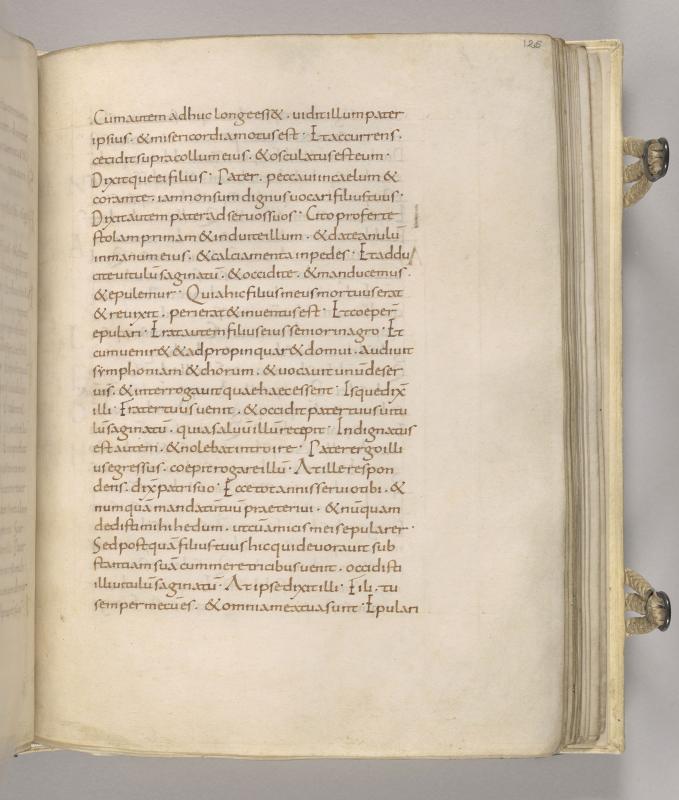 125
Cum autem adhuc longe ess&. uidit illum pater
ipsius. & misericordia motus est. Et accurrens.
cecidit supra collum eius. & osculatus est eum.
Dixitque ei filius. Pater. peccaui in caelum &
coram te. iam non sum dignus uocari filius tuus.
Dixit autem pater ad seruos suos. Cito proferte
stolam primam & induite illum. & date anulū
in manum eius. & calciamenta in pedes. Et addu
cite uitulū saginatū. & occidite. & manducemus.
& epulemur. Quia hic filius meus mortuus erat
& reuixit. perierat & inuentus est. Et coeper̄
epulari. Erat autem filius eius senior in agro. Et
cum uenir& & adpropinquar& domui. audiuit
symphoniam & chorum. & uocauit unū de ser
uis. & interrogauit quae haec essent. Isque dix̄
illi. Frater tuus uenit. & occidit pater tuus uitu
lū saginatū. quia saluū illū recepit. Indignatus
est autem. & nolebat introire. Pater ergo illi
us egressus. coepit rogare illū. At ille respon
dens. dix̄ patri suo. Ecce tot annis seruio tibi. &
numquā mandatū tuū praeteriui. & nūquam
dedisti mihi hedum. ut cū amicis meis epularer.
Sed postquā filius tuus hic qui deuorauit sub
stantiam suā cum meretricibus uenit. occidisti
illi uitulū saginatū. At ipse dixit illi. Fili. tu
semper mecū es. & omnia mea tua sunt. Epulari